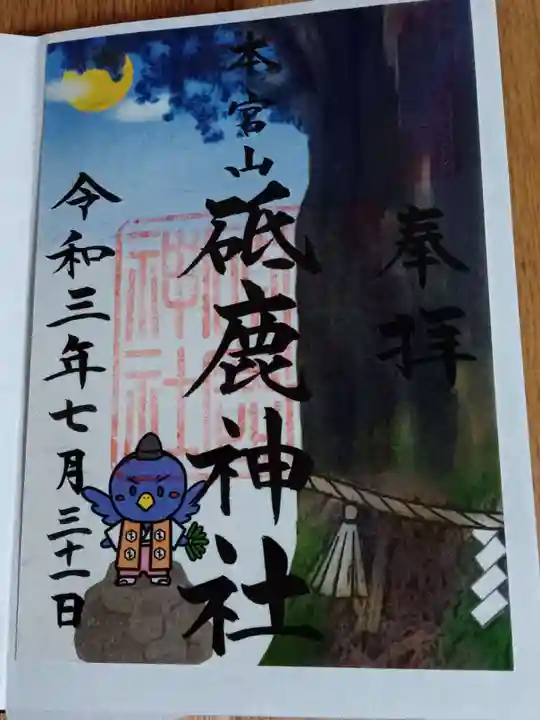 奉拝
本宮山
砥鹿神社
令和三年七月三十一日